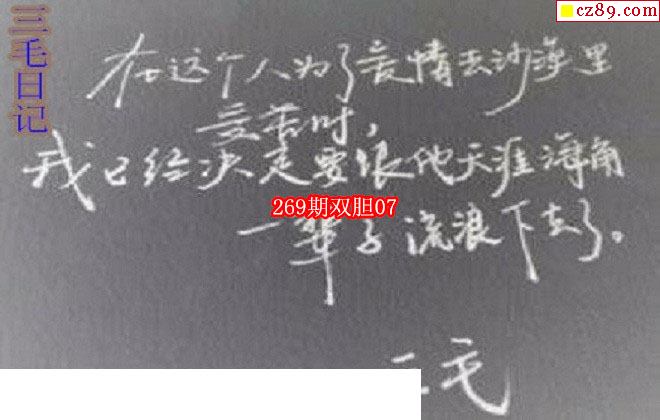 cz89.com
三毛日记
在这个人为了爱情去沙漠里
受苦时，
我已经决定要跟他天涯海角
269期双胆07
一辈子流浪下去了。
三毛